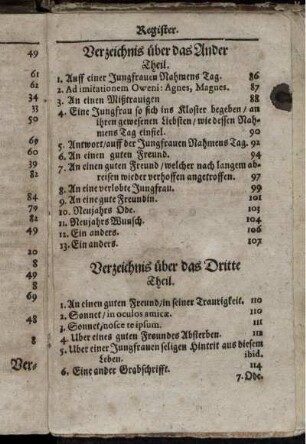 49
61
62
34
33
5
60
5
8
8
84
79
8
8
69
48
8
Ver-
Register.
Verzeichnis über das Ander
Theil.
1. Auff einer Jungfrauen Nahmens Tag. 86
2. Ad imitationem Oweni: Agnes, Magnes. 87
3. An einen Mißtrauigen 88
4. Eine Jungfrau so sich ins Kloster begeben / an
ihren gewesenen Liebsten / wie dessen Nah-
mens Tag einfiel. 90
5. Antwort / auff der Jungfrauen Nahmens Tag. 92
6. An einen guten Freund. 94
7. An einen guten Freund / welcher nach langem ab-
reisen wieder verhoffen angetroffen. 97
8. An eine verlobte Jungfrau. 99
9. An eine gute Freundin. 101
10. Neujahrs Ode. 103
11. Neujahrs Wunsch. 104
12. Ein anders. 106
13. Ein anders. 107
Verzeichnis über das Dritte
Theil.
1. An einen guten Freund / in seiner Traurigkeit. 110
2. Sonnet / in oculos amicæ. 110
3. Sonnet / nosce te ipsum. 111
4. Uber eines guten Freundes Absterben. 112
5. Uber einer Jungfrauen seligen Hintrit aus diesem
Leben. ibid.
6. Eine ander Grabschrifft. 114
7. Ode.